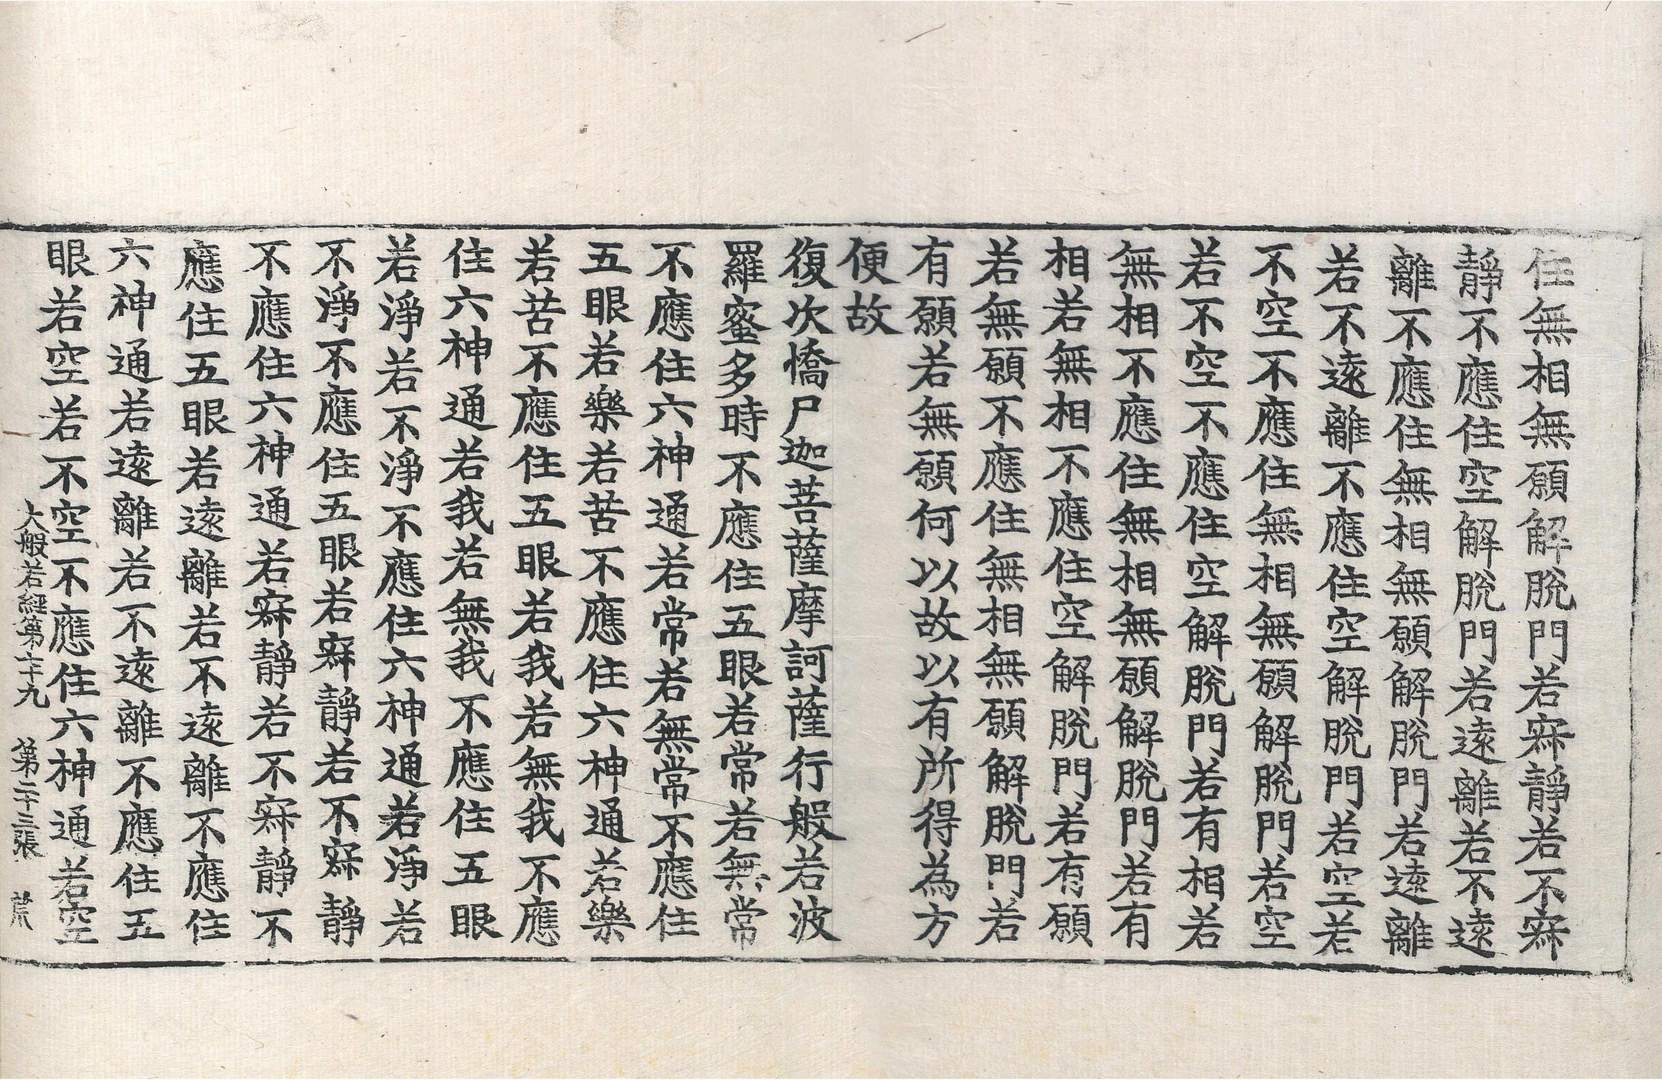 住無相無願解脫門若寂靜若不寂
靜不應住空解脫門若遠離若不遠
離不應住無相無願解脫門若遠離
若不遠離不應住空解脫門若空若
不空不應住無相無願解脫門若空
若不空不應住空解脫門若有相若
無相不應住無相無願解脫門若有
相若無相不應住空解脫門若有願
若無願不應住無相無願解脫門若
有願若無願何以故以有所得為方
便故
復次憍尸迦菩薩摩訶薩行般若波
羅蜜多時不應住五眼若常若無常
不應住六神通若常若無常不應住
五眼若樂若苦不應住六神通若樂
若苦不應住五眼若我若無我不應
住六神通若我若無我不應住五眼
若淨若不淨不應住六神通若淨若
不淨不應住五眼若寂靜若不寂靜
不應住六神通若寂靜若不寂靜不
應住五眼若遠離若不遠離不應住
六神通若遠離若不遠離不應住五
眼若空若不空不應住六神通若空
大般若經第七十九 第二十三張 荒